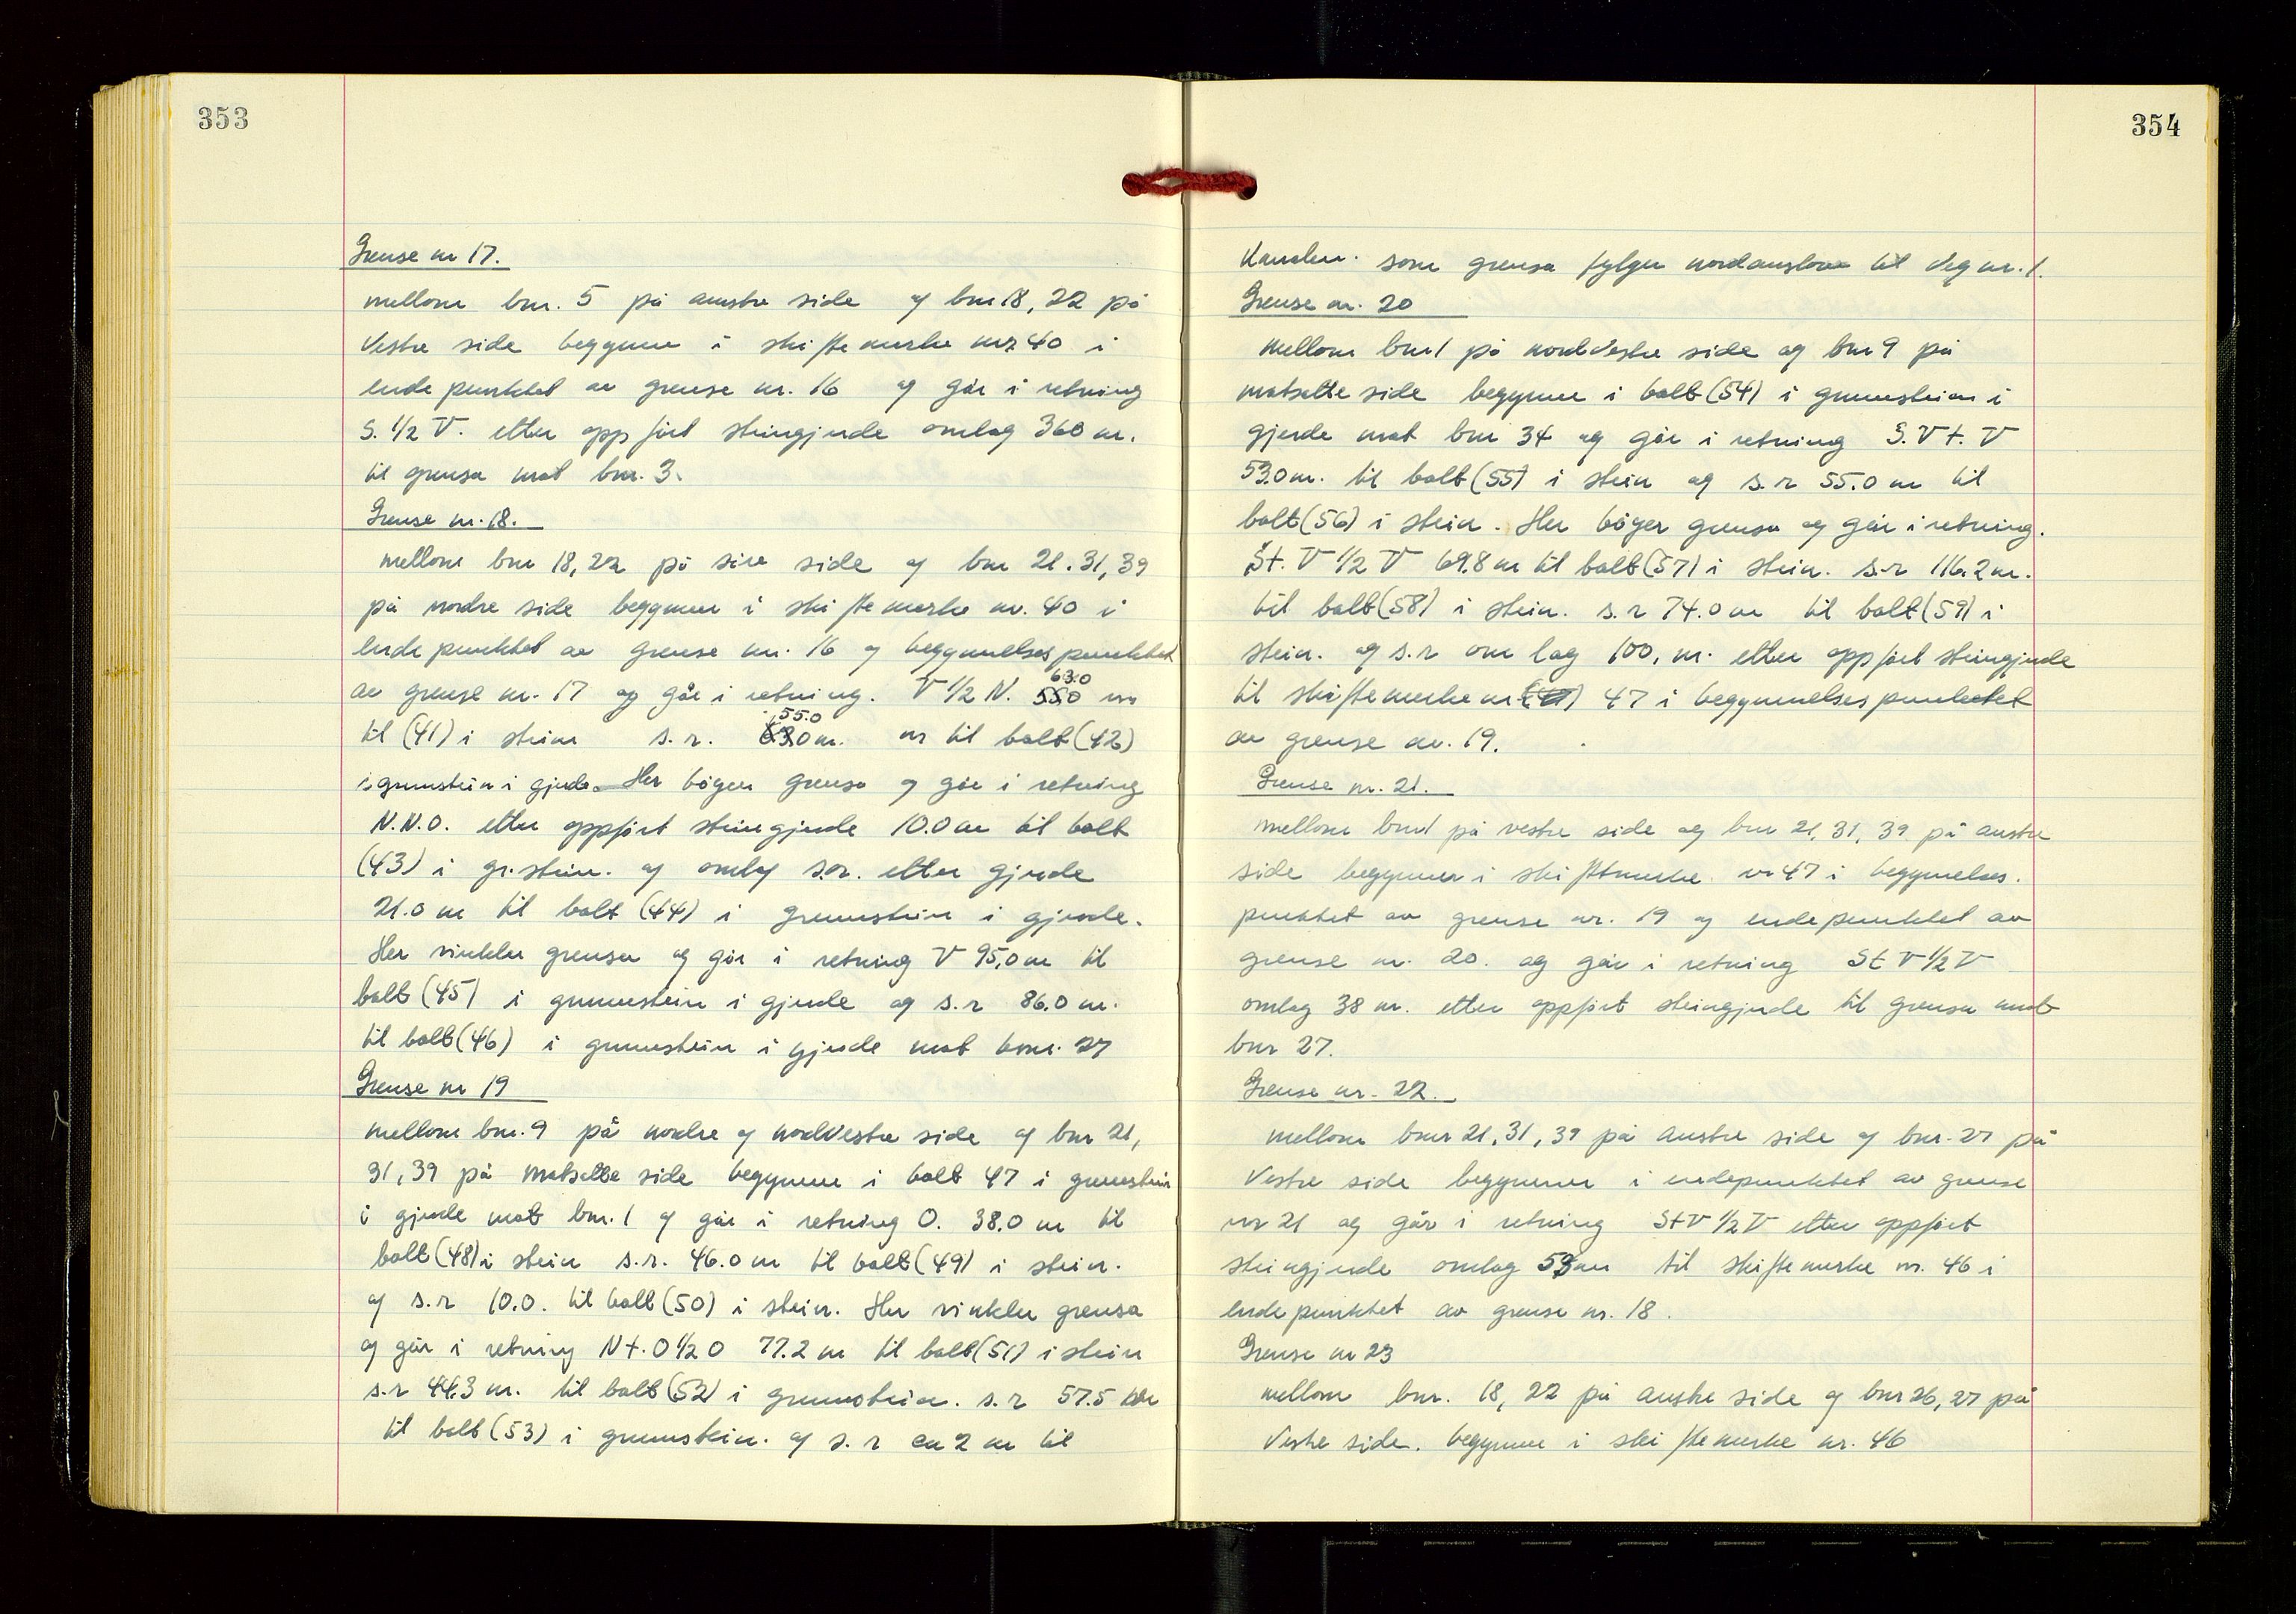 353
Grense nr 17.
mellom bnr. 5 på austre side og bnr 18, 22 på
Vestre side begynner i skiftemerke nr 40 i
endepunktet av grense nr. 16 og går i retning
S. 1/2 V. etter oppført steingjerde omlag 360 m.
til grensa mot bnr. 3.
Grense nr. 18.
mellom bnr 18, 22 på sire side og bnr 21. 31, 39
på nordre side begynner i skiftemerke nr. 40 i
endepunktet av grense nr. 16 og begynnelsespunktet
av grense nr. 17 og går i retning. V 1/2 N. 63.0 m
til (41) i stein s. r. 55.0 m til bolt (42)
i grunnstein i gjerde. Her bøyer grensa og går i retning
N.N.O. etter oppført steingjerde 10.0 m til bolt
(43) i gr.stein. og omlag s.r. etter gjerde
21.0 m til bolt (44) i grunnstein i gjerde.
Her vinkler grensa og går i retning V 95,0 m til
bolt (45) i grunnstein i gjerde og s.r 86.0 m.
til bolt (46) i grunnstein i gjerde mot bnr. 27
Grense nr 19
mellom bnr. 9 på nordre og nordvestre side og bnr 21,
31, 39 på motsatte side begynner i bolt 47 i grunnstein
i gjerde mot bnr. 1 og går i retning O. 38.0 m til
bolt (48) i stein s.r. 46.0 m til bolt (49) i stein.
og s.r 10.0. til bolt (50) i stein. Her vinkler grensa
og går i retning N t. O 1/2 O 77.2 m til bolt (51) i stein
s.r 44.3 m. til bolt (52) i grunnstein. s. r 57.5 m
til bolt (53) i grunnstein. og s. r ca 2 m til
354
Kanalen. som grensa fylgjer nordaustover til Veg nr. 1.
Grense nr. 20
mellom bnr 1 på nordvestre side og bnr 9 på
motsatte side begynner i bolt (54) i grunnstein i
gjerde mot bnr 34 og går i retning S. V t. V
53.0 m. til bolt (55) i stein og s.r 55.0 m til
bolt (56) i stein. Her bøyer grensa og går i retning.
St. V 1/2 V 69.8 m til bolt (57) i stein. s.r 116.2 m.
til bolt (58) i stein. s. r 74.0 m til bolt (59) i
stein. og s.r om lag 100, m. etter oppført steingjerde
til skiftemerke nr 47 i begynnelsespunktet
av grense nr. 19.
Grense nr. 21.
mellom bnr 1 på vestre side og bnr 21, 31, 39 på austre
side begynner i skiftemerke nr 47 i begynnelses.
punktet av grense nr. 19 og endepunktet av
grense nr. 20. og går i retning St V 1/2 V
omlag 38 m. etter oppført steingjerde til grensa mot
bnr 27.
Grense nr. 22.
mellom bnr 21, 31, 39 på Austre side og bnr. 27 på
Vestre side begynner i endepunktet av grense
nr 21 og går i retning St V 1/2 V etter oppført
steingjerde omlag 53 m til skiftemerke nr. 46 i
endepunktet av grense nr. 18.
Grense nr 23
mellom bnr. 18, 22 på austre side og bnr 26, 27 på
Vestre side. begynner i skiftemerke nr. 46